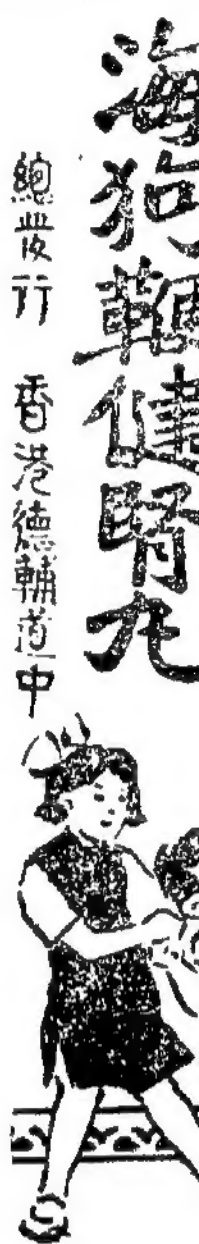 海狗鞭健腎丸
總發行 香港德輔道中